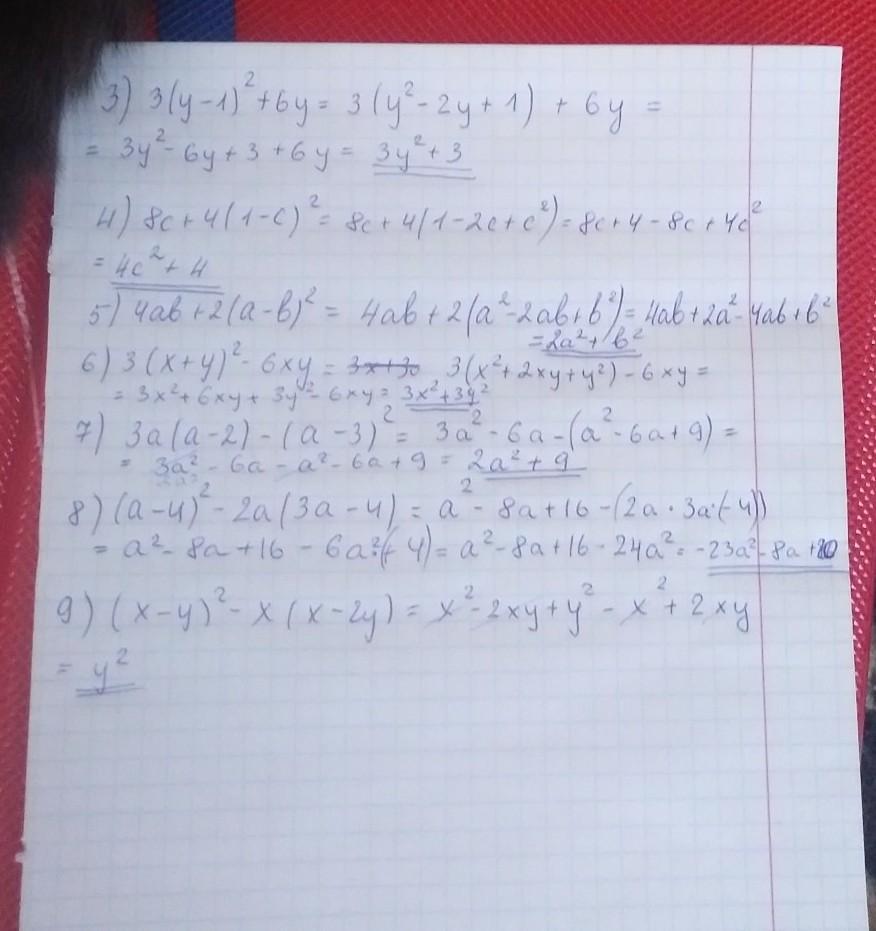 3) 3(y-1)²+6y = 3(y²-2y+1) + 6y =
= 3y²-6y+3+6y = 3y²+3
4) 8c+4(1-c)² = 8c+4(1-2c+c²) = 8c+4-8c+4c²
= 4c²+4
5) 4ab+2(a-b)² = 4ab+2(a²-2ab+b²) = 4ab+2a²-4ab+b²
= 2a²+b²
6) 3(x+y)²-6xy = 3(x²+2xy+y²)-6xy =
= 3x²+6xy+3y²-6xy = 3x²+3y²
7) 3a(a-2)-(a-3)² = 3a²-6a-(a²-6a+9) =
= 3a²-6a-a²-6a+9 = 2a²+9
8) (a-4)²-2a(3a-4) = a²-8a+16-(2a·3a·(-4))
= a²-8a+16-6a²·(-4) = a²-8a+16-24a² = -23a²-8a+
9) (x-y)²-x(x-2y) = x²-2xy+y²-x²+2xy
= y²